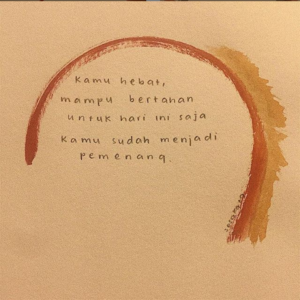 Kamu hebat,
mampu bertahan
untuk hari ini saja
kamu sudah menjadi
pemenang.